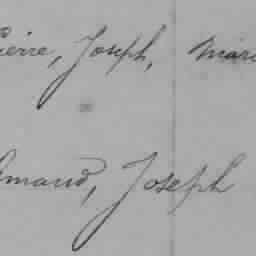 ierre, Joseph, Mari
Amand, Joseph